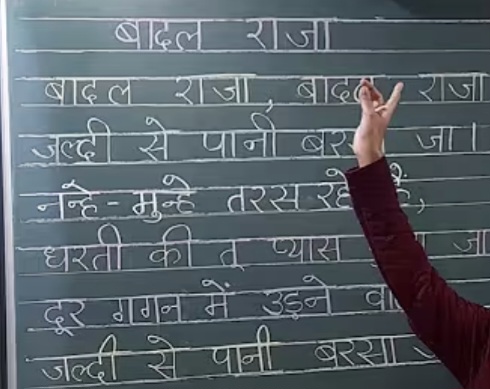 बादल राजा
बादल राजा, बादल राजा
जल्दी से पानी बरसा जा।
नन्हे-मुन्हे तरस रहे हैं,
धरती की तू प्यास जा
दूर गगन में उड़ने
जल्दी से पानी बरसा